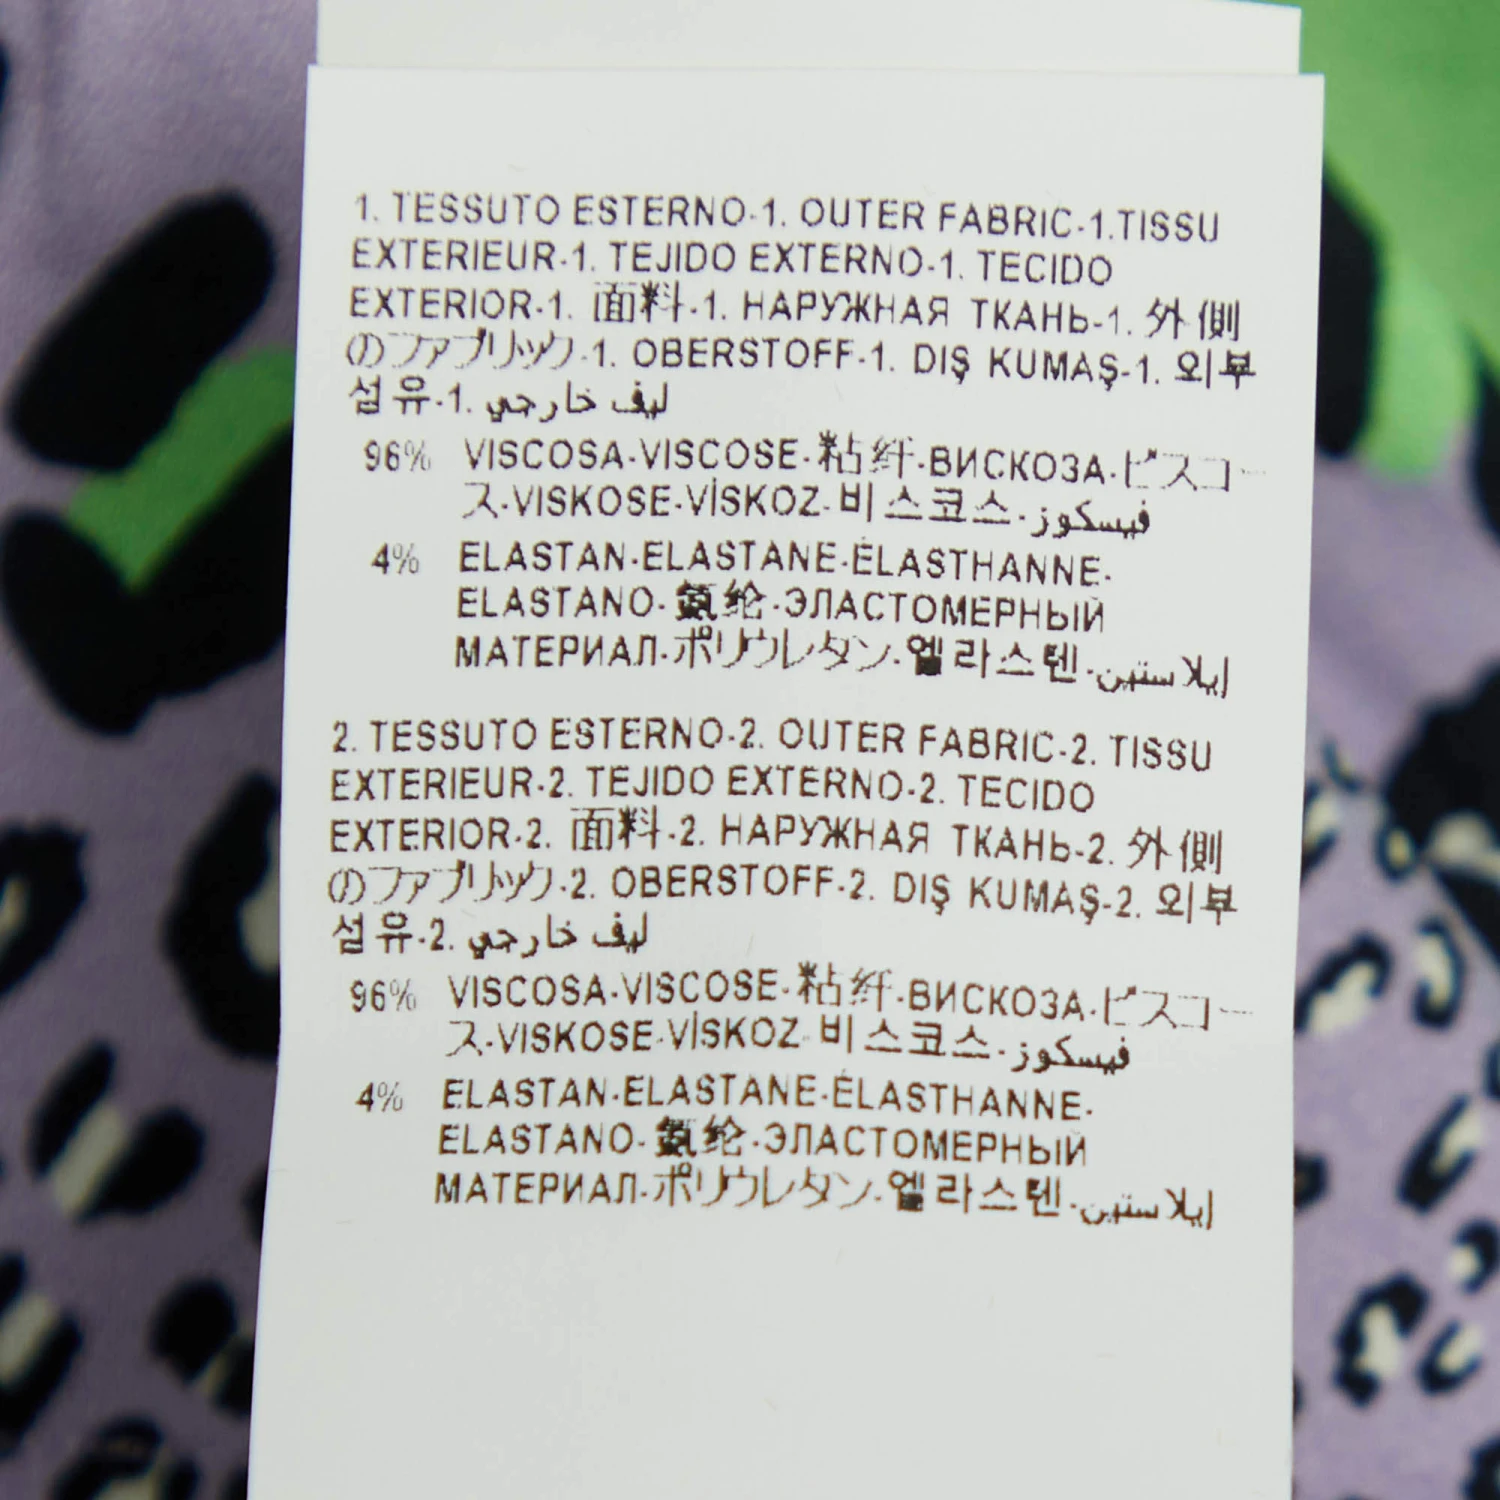 1. TESSUTO ESTERNO-1. OUTER FABRIC-1.TISSU
EXTERIEUR-1. TEJIDO EXTERNO-1. TECIDO
EXTERIOR-1. 面料-1. НАРУЖНАЯ ТКАНЬ-1. 外側
のファブリック-1. OBERSTOFF-1. DIŞ KUMAŞ-1. 외부
섬유-1. ليف خارجي
96% VISCOSA-VISCOSE-粘纤-ВИСКОЗА-ビスコー
ス-VISKOSE-VİSKOZ-비스코스-فيسكوز
4% ELASTAN-ELASTANE-ÉLASTHANNE-
ELASTANO-氨纶-ЭЛАСТОМЕРНЫЙ
МАТЕРИАЛ-ポリウレタン-엘라스텐-إيلاستين
2. TESSUTO ESTERNO-2. OUTER FABRIC-2. TISSU
EXTERIEUR-2. TEJIDO EXTERNO-2. TECIDO
EXTERIOR-2. 面料-2. НАРУЖНАЯ ТКАНЬ-2. 外側
のファブリック-2. OBERSTOFF-2. DIŞ KUMAŞ-2. 외부
섬유-2. ليف خارجي
96% VISCOSA-VISCOSE-粘纤-ВИСКОЗА-ビスコー
ス-VISKOSE-VİSKOZ-비스코스-فيسكوز
4% ELASTAN-ELASTANE-ÉLASTHANNE-
ELASTANO-氨纶-ЭЛАСТОМЕРНЫЙ
МАТЕРИАЛ-ポリウレタン-엘라스텐-إيلاستين